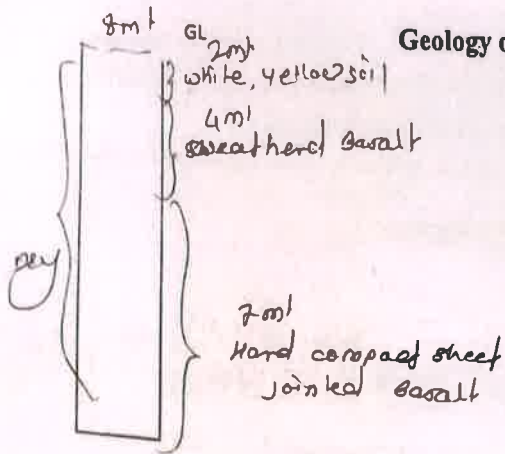 8mt
GL
Geology o
2mt
white, yellow soil
4mt
sweatherd Basalt
7mt
Hard compact sheet
Jointed Basalt